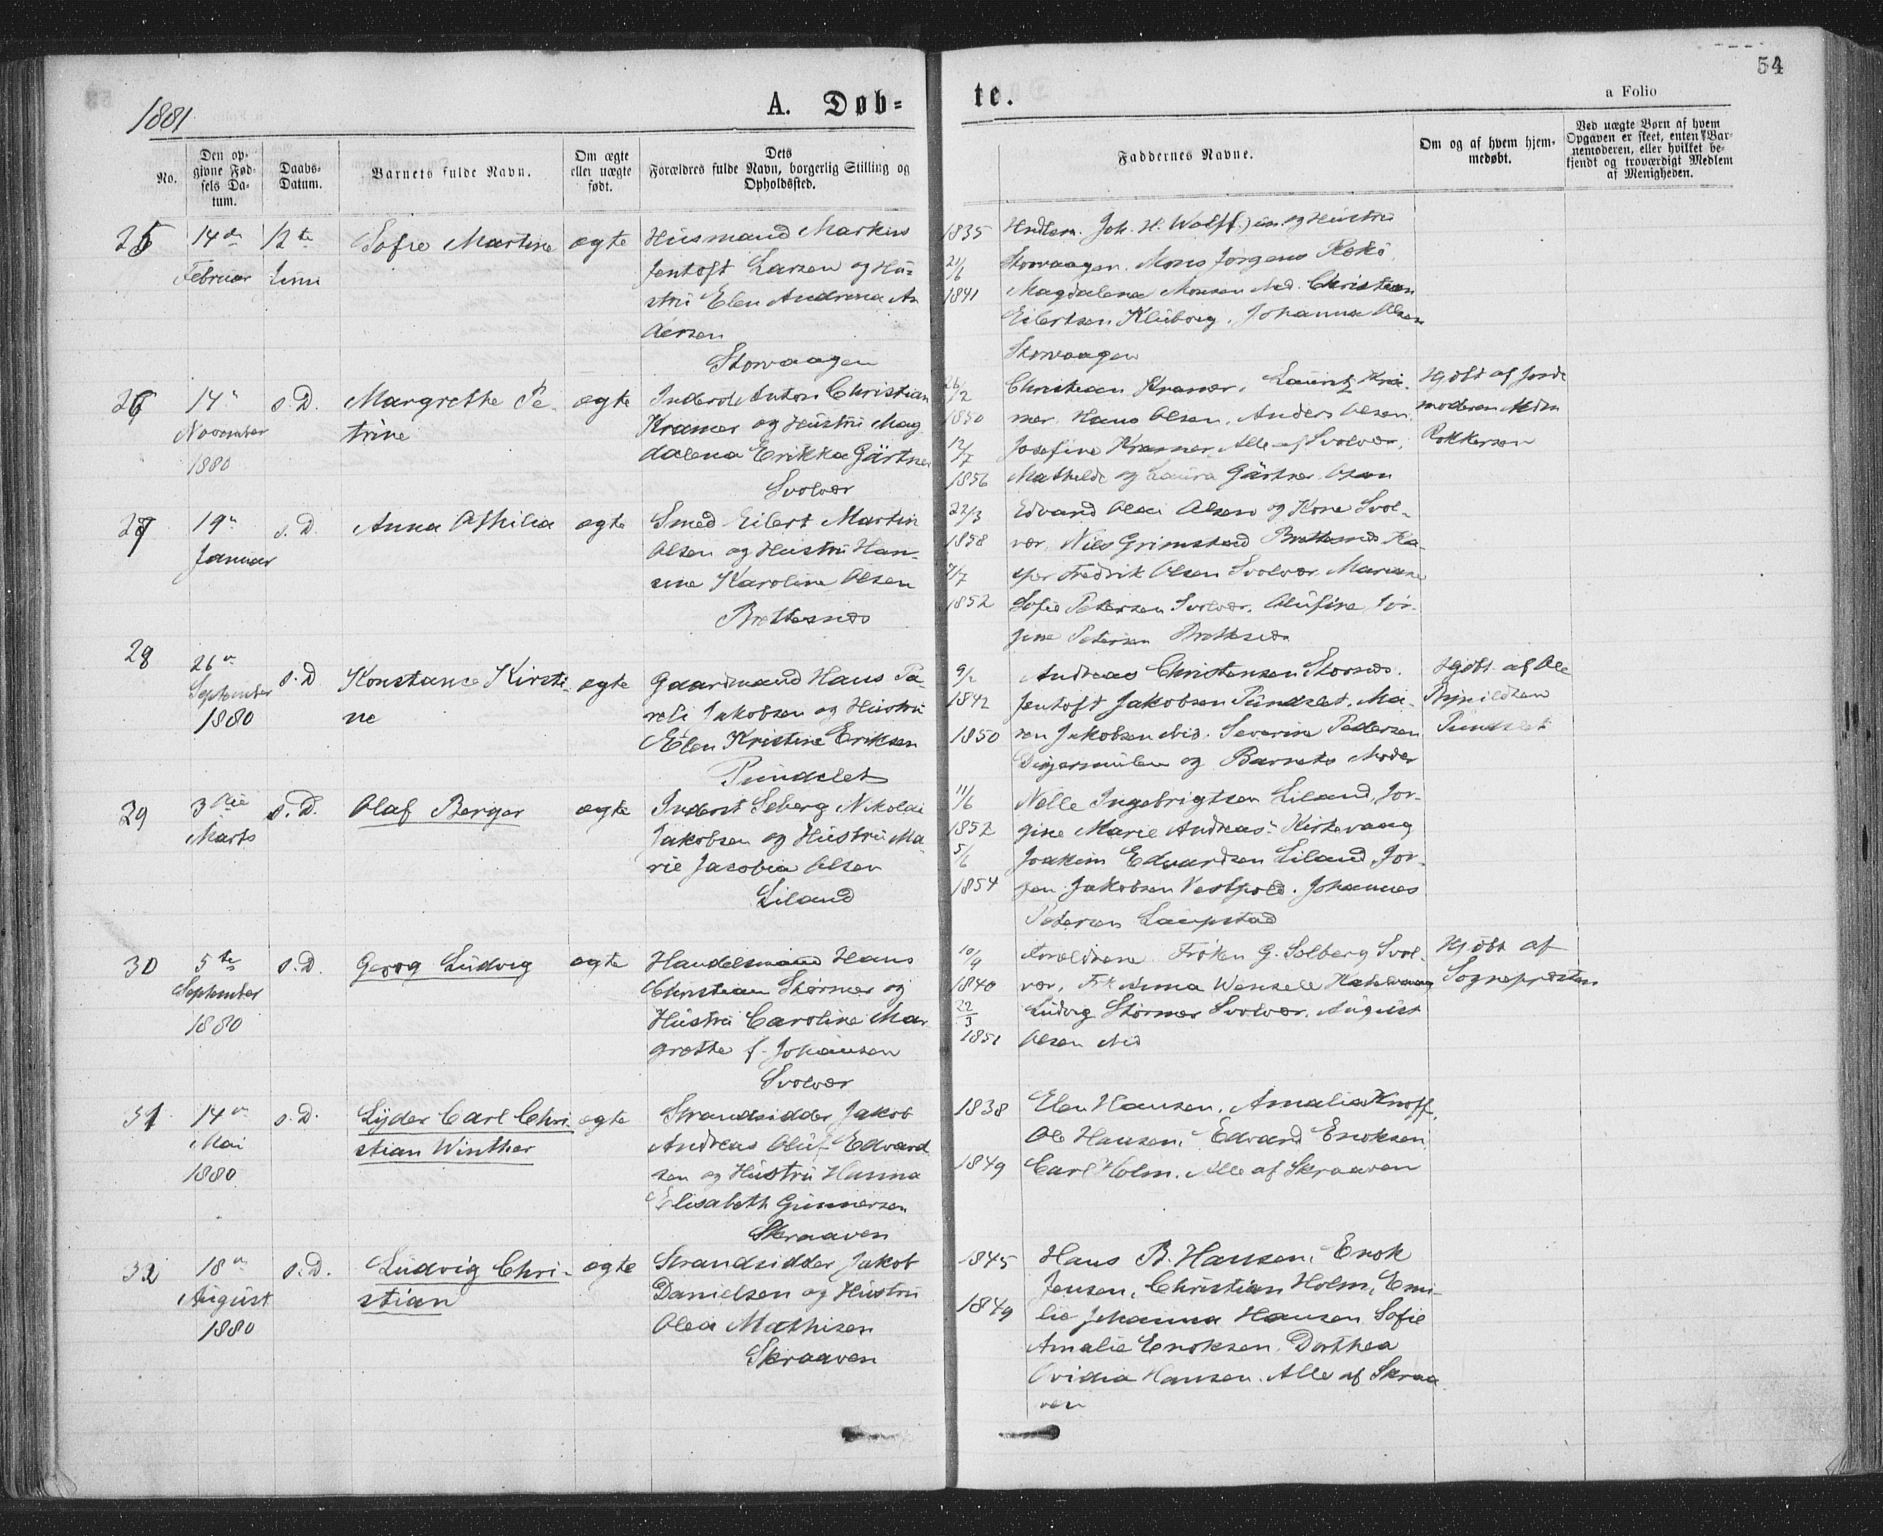 54
a Folio
1881
A. Døb-
te.
No.
Den op-
givne Fød-
sels Da-
tum.
Daabs-
Datum.
Barnets fulde Navn.
Om ægte
eller uægte
født.
Dets
Forældres fulde Navn, borgerlig Stilling og
Opholdssted.
Faddernes Navne.
Om og af hvem hjem-
medøbt.
Ved uægte Børn af hvem
Opgaven er skeet, enten af Bar-
nemoderen, eller hvilket be-
kjendt og troværdigt Medlem
af Menigheden.
25
14de
Februar
12te
Juni
Sofie Martine
ægte
Husmand Markus
Jentoft Larsen og Hu-
stru Elen Andrina An
dersen
Storvaagen
1835
21/6
1841
Joh. H. Wolff jun. og Hustru
Storvaagen. Mons Jørgens
Magdalena Monsen ibid. Christian
Eilertsen Kleiborg. Johanna Olsen
Storvaagen
26
14de
November
1880
s. D.
Margrethe Pe-
trine
ægte
Inderst Anton Christian
Kramer og Hustru Mag
dalena Erikka Gärtner
Svolvær
26/2
1850
12/7
1856
Christian Kramer. Lauritz Kra-
mer. Hans Olsen. Anders Olsen.
Josefine Kramer. Alle af Svolvær.
Mathilde og Laura Gärtner Osan
Hjdbt af Jorde
moderen Mdm
Rokkersen
27
19de
Januar
s. D.
Anna Othilia
ægte
Smed Eilert Martin
Olsen og Hustru Han-
sine Karoline Olsen
Brettesnæs
22/3
1858
7/7
1852
Edvard Olai Olsen og Kone Svol-
vær. Nils Grimstad Brettesnæs Ka-
sper Fredrik Olsen Svolvær. Mariane
Sofie Petersen Svolvær. Olufine Jør-
gine Petersen Brettesnæs
28
26de
September
1880
s. D
Konstance Kirsti-
ne
ægte
Gaardmand Hans Pa-
reli Jakobsen og Hustru
Elen Kristine Eriksen
Pundslet
9/2
1842
1850
Andreas Christensen Stornæs.
Jentoft Jakobsen Pundslet. Ma-
ren Jakobsen ibid. Severine Pedersen
Digermulen og Barnets Moder
Hjdbt. af Ole
Pundslet
29
3die
Marts
s. D.
Olaf Berger
ægte
Inderst Seberg Nikolai
Jakobsen og Hustru Ma
rie Jacobia Olsen
Liland
11/6
1852
5/6
1854
Nelle Ingebrigtsen Liland, Jør-
gine Marie Andreas: Kirkevaag
Joakim Edvardsen Liland, Jør-
gen Jakobsen Vestpold. Johannes
Petersen Laupstad
30
5te
September
1880
s. D.
Georg Ludvig
ægte
Handelsmand Hans
Christian Størmer og
Hustru Caroline Mar
grethe f. Johansen
Svolvær
10/9
1840
22/3
1851
Forældrene. Frøken G. Solberg Svol-
vær, Frk Anna Wensell
Ludvig Størmer Svolvær. August
Olsen ibid
Hjdbt af
Sognepræsten
31
14de
Mai
1880
s. D.
Lyder Carl Chri
stian Winther
ægte
Strandsidder Jakob
Andreas Oluf Edvard
sen og Hustru Hanna
Elisabeth Gunnersen
Skraaven
1838
1849
Elen Hansen, Amalia Knoff,
Ole Hansen, Edvard Enoksen
Carl Holm. Alle af Skraaven
32
18de
August
1880
s. D.
Ludvig Chri-
stian
ægte
Strandsidder Jakob
Danielsen og Hustru
Olea Mathisen
Skraaven
1845
1849
Hans B. Hansen, Enok
Jensen, Christian Holm, Emi-
lie Johanna Hansen Sofie
Amalie Enoksen. Dorthea
Ovidia Hansen. Alle af Skraa
ven